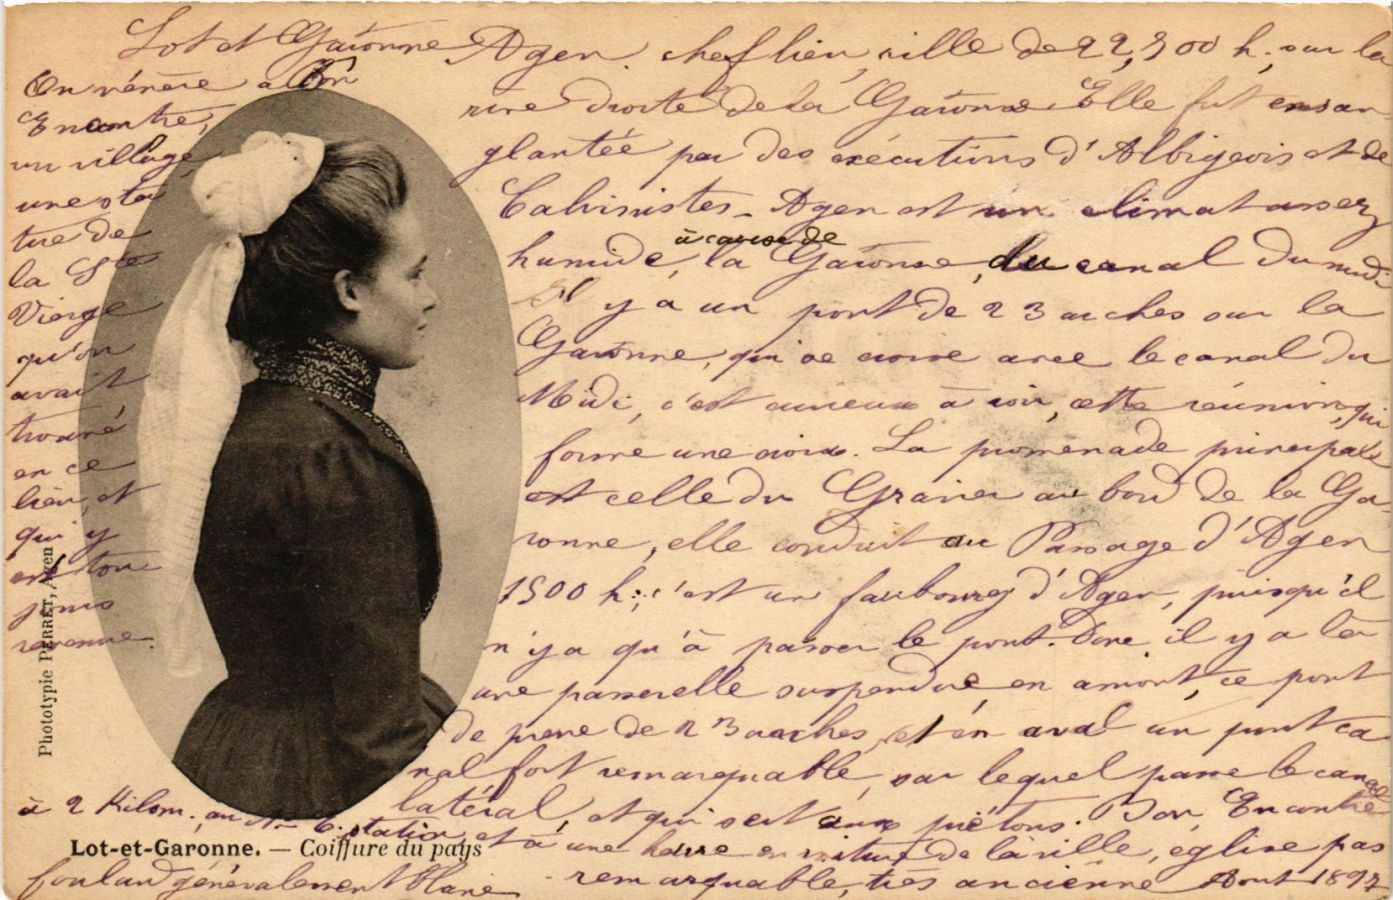 Lot et Garonne Agen. chef lieu, ville de 22,300 h. sur la
rive droite de la Garonne. Elle fut ensan
glantée par des exécutions d'Albigeois et de
Calvinistes_ Agen est un climat assez
humide, à cause de la Garonne, du canal du midi
Il y a un pont de 23 arches sur la
Garonne, qui se croise avec le canal du
Midi, c'est curieux à voir, cette réunion, qui
forme une croix. La promenade principale
est celle du Gravier au bord de la Ga-
ronne, elle conduit au Passage d'Agen
1500 h; c'est un faubourg d'Agen, puisqu'il
n'y a qu'à passer le pont. Donc il y a là
une passerelle suspendue en amont, ce pont
de pierre de 23 arches, et en aval un pont ca
nal fort remarquable, sur lequel passe le canal
latéral, et qui sert aux piétons. Bon, Encontre
à 2 Kilom., au station, et à une heure en voiture de la ville, église pas
remarquable, très ancienne Août 1897
On vénère à Bon
Encontre,
un village,
une sta
tue de
la Ste
Vierge
qu'on
avait
trouvé
en ce
lieu, et
qui y
est tou
jours
revenue
Phototypie PERRET, Agen
Lot-et-Garonne. — Coiffure du pays
foulard généralement blanc